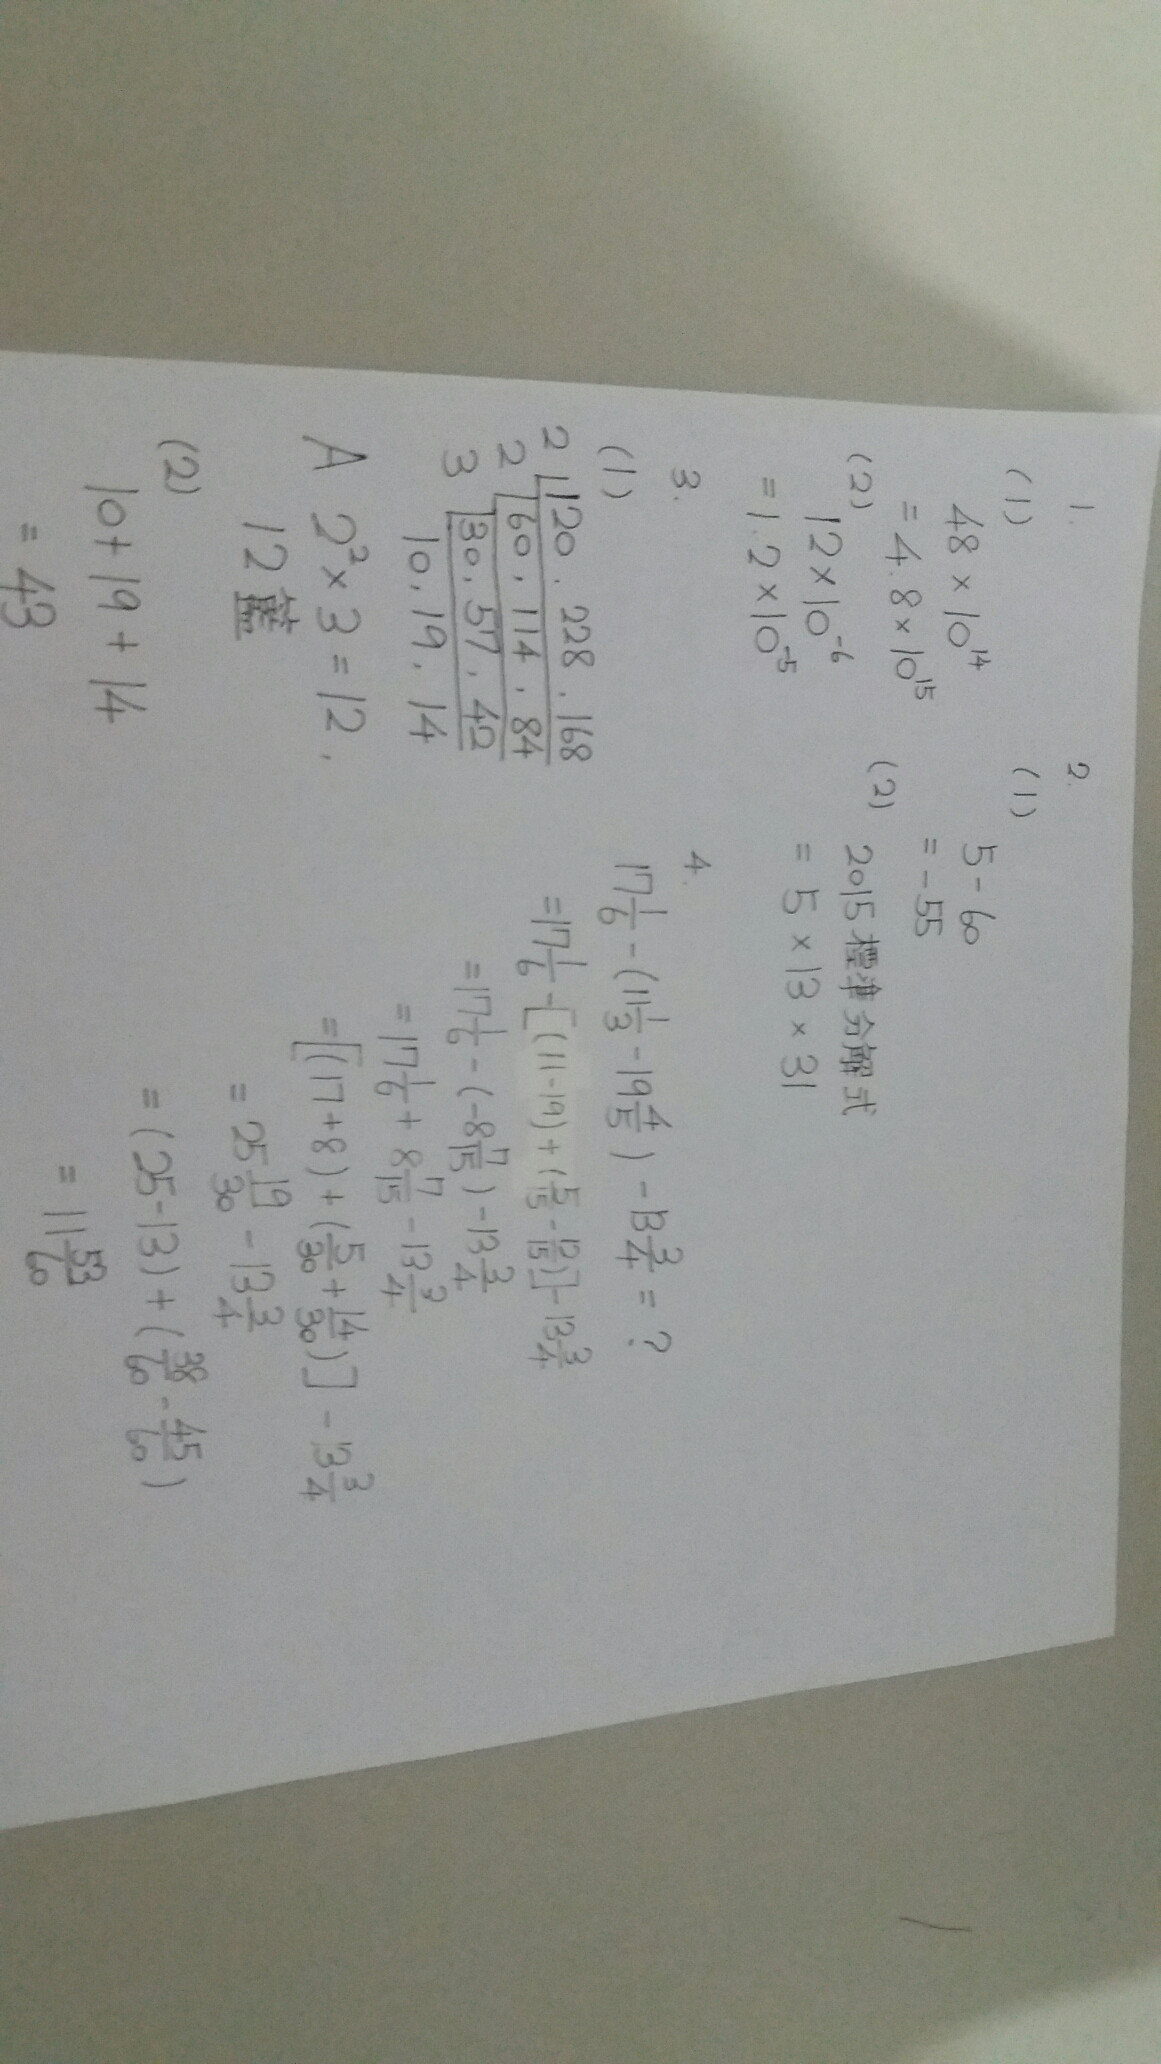 1.
(1)
48 × 10¹⁴
= 4.8 × 10¹⁵
(2)
12 × 10⁻⁶
= 1.2 × 10⁻⁵
2.
(1)
5 - 60
= -55
(2)
2015 標準分解式
= 5 × 13 × 31
3.
(1)
2 120 . 228 . 168
2 60 . 114 . 84
3 30 . 57 . 42
10 . 19 . 14
A 2² × 3 = 12 .
12籃
(2)
10 + 19 + 14
= 43
4.
17 1/6 - (11 1/3 - 19 4/5) - 13 3/4 = ?
= 17 1/6 - [(11-19) + (5/15 - 12/15)] - 13 3/4
= 17 1/6 - (-8 7/15) - 13 3/4
= 17 1/6 + 8 7/15 - 13 3/4
= [(17+8) + (5/30 + 14/30)] - 13 3/4
= 25 19/30 - 13 3/4
= (25-13) + (38/60 - 45/60)
= 11 53/60